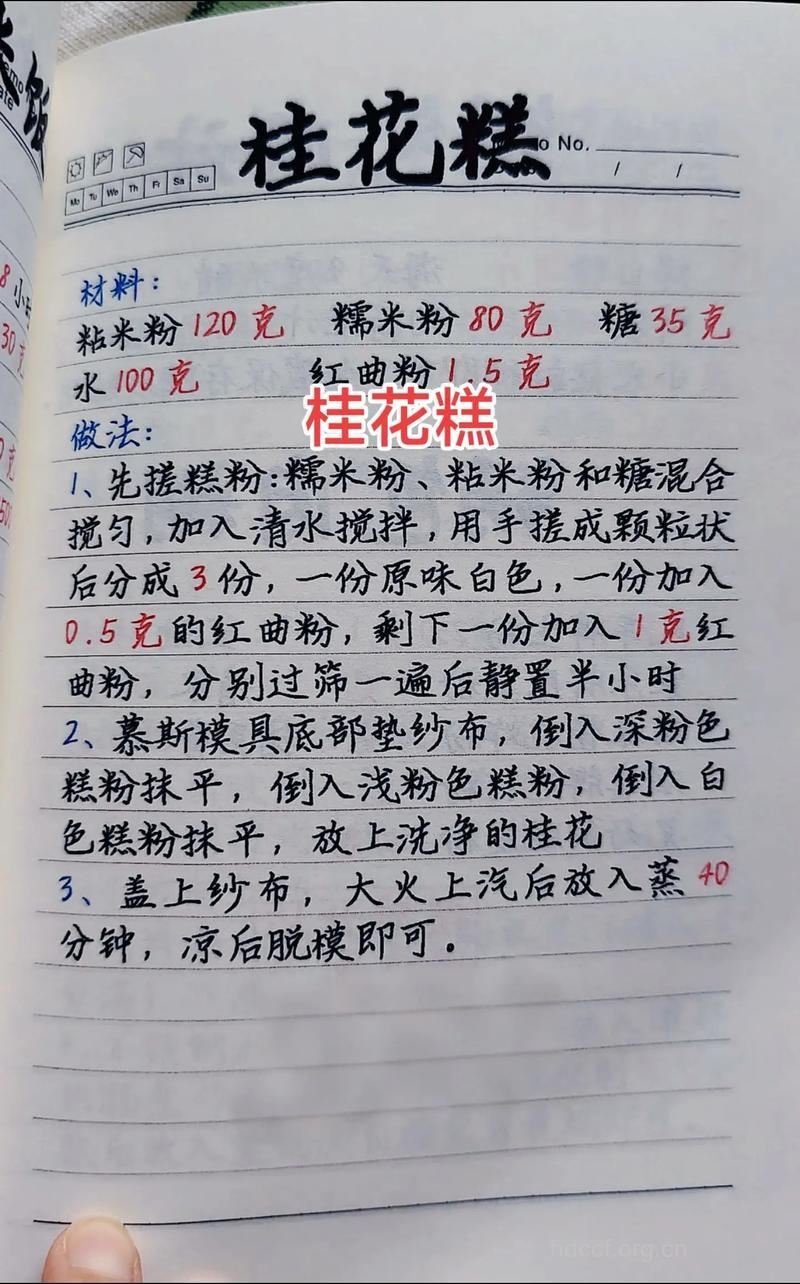 桂花糕
No.
Mo Tu We Th Fr Sa Su
/ /
材料:
粘米粉120克 糯米粉80克 糖35克
水100克 红曲粉1.5克
桂花糕
做法:
1、先搓糕粉:糯米粉、粘米粉和糖混合
搅匀,加入清水搅拌,用手搓成颗粒状
后分成3份,一份原味白色,一份加入
0.5克的红曲粉,剩下一份加入1克红
曲粉,分别过筛一遍后静置半小时
2、慕斯模具底部垫纱布,倒入深粉色
糕粉抹平,倒入浅粉色糕粉,倒入白
色糕粉抹平,放上洗净的桂花
3、盖上纱布,大火上汽后放入蒸40
分钟,凉后脱模即可。
hdccf.org.cn